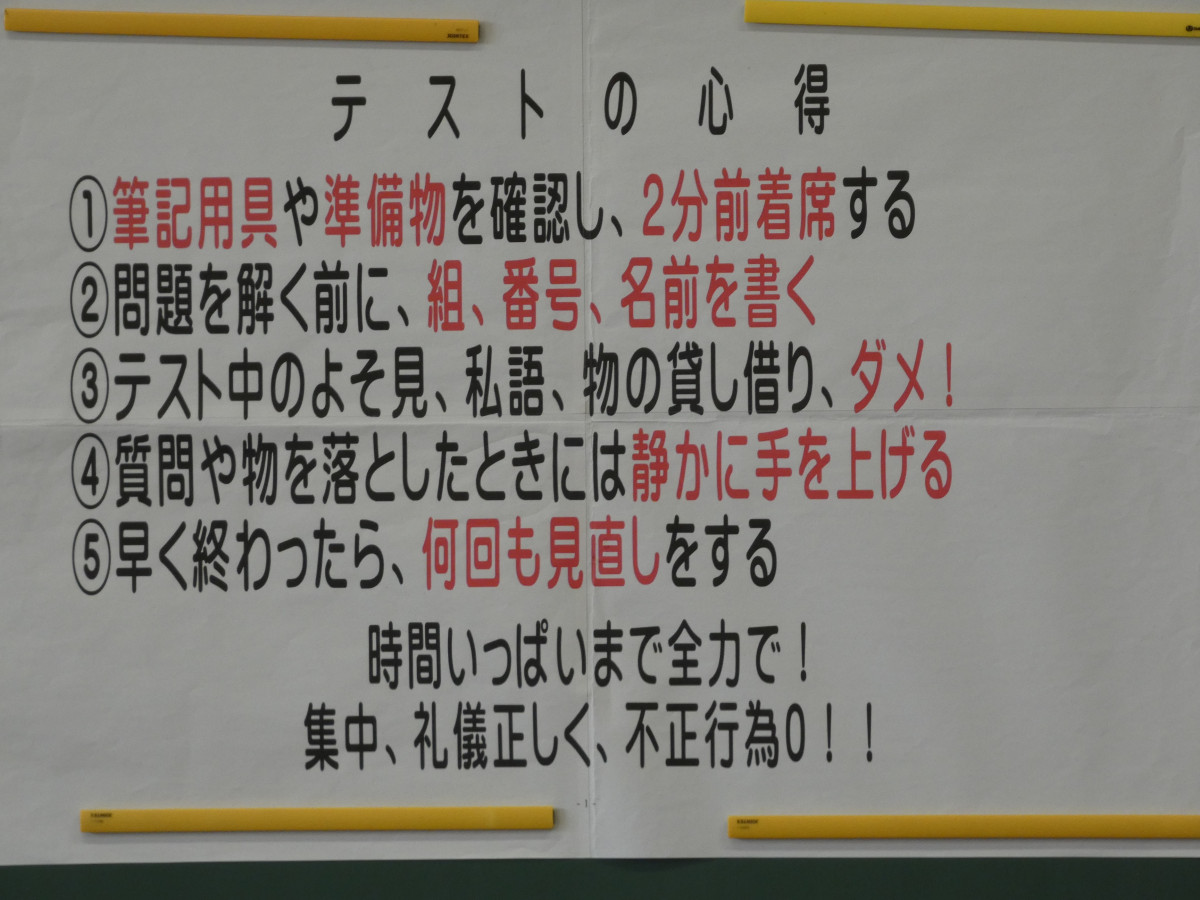 テストの心得
①筆記用具や準備物を確認し、2分前着席する
②問題を解く前に、組、番号、名前を書く
③テスト中のよそ見、私語、物の貸し借り、ダメ！
④質問や物を落としたときには静かに手を上げる
⑤早く終わったら、何回も見直しをする
時間いっぱいまで全力で！
集中、礼儀正しく、不正行為0！！
- 1 -